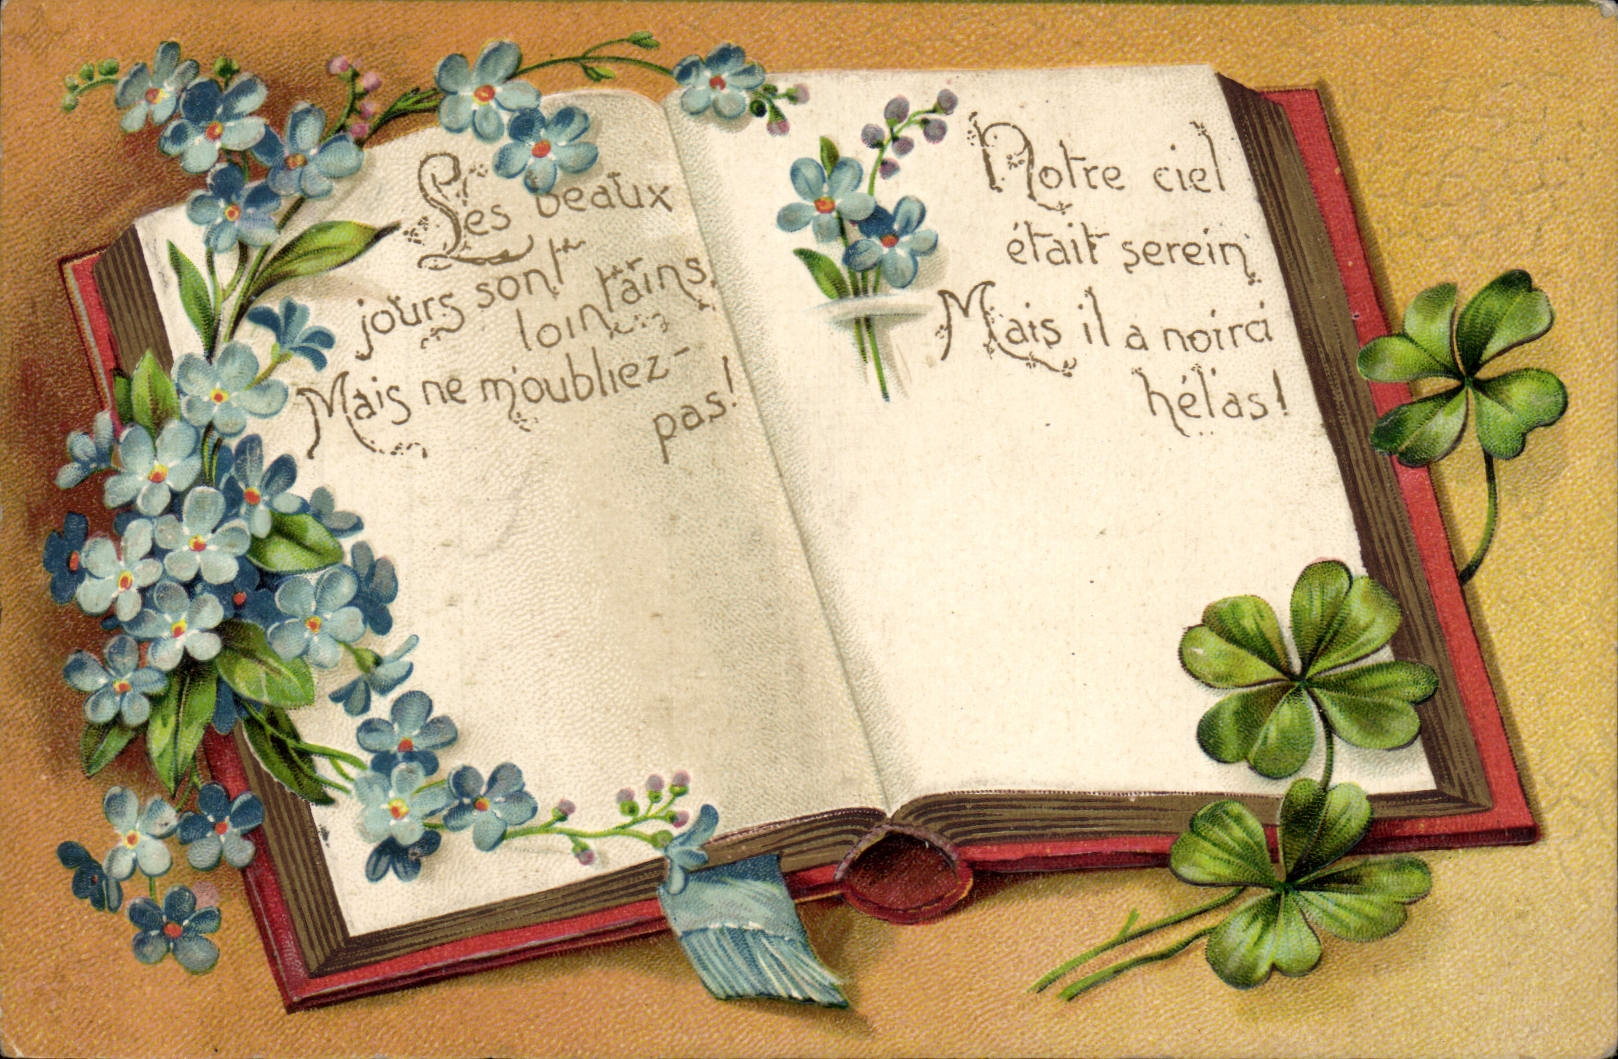 Les beaux
jours sont
lointains,
Mais ne m'oubliez-
pas!
Notre ciel
était serein,
Mais il a noirci
hélas!